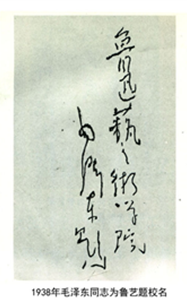 魯迅藝術學院
毛澤東題
1938年毛泽东同志为鲁艺题校名